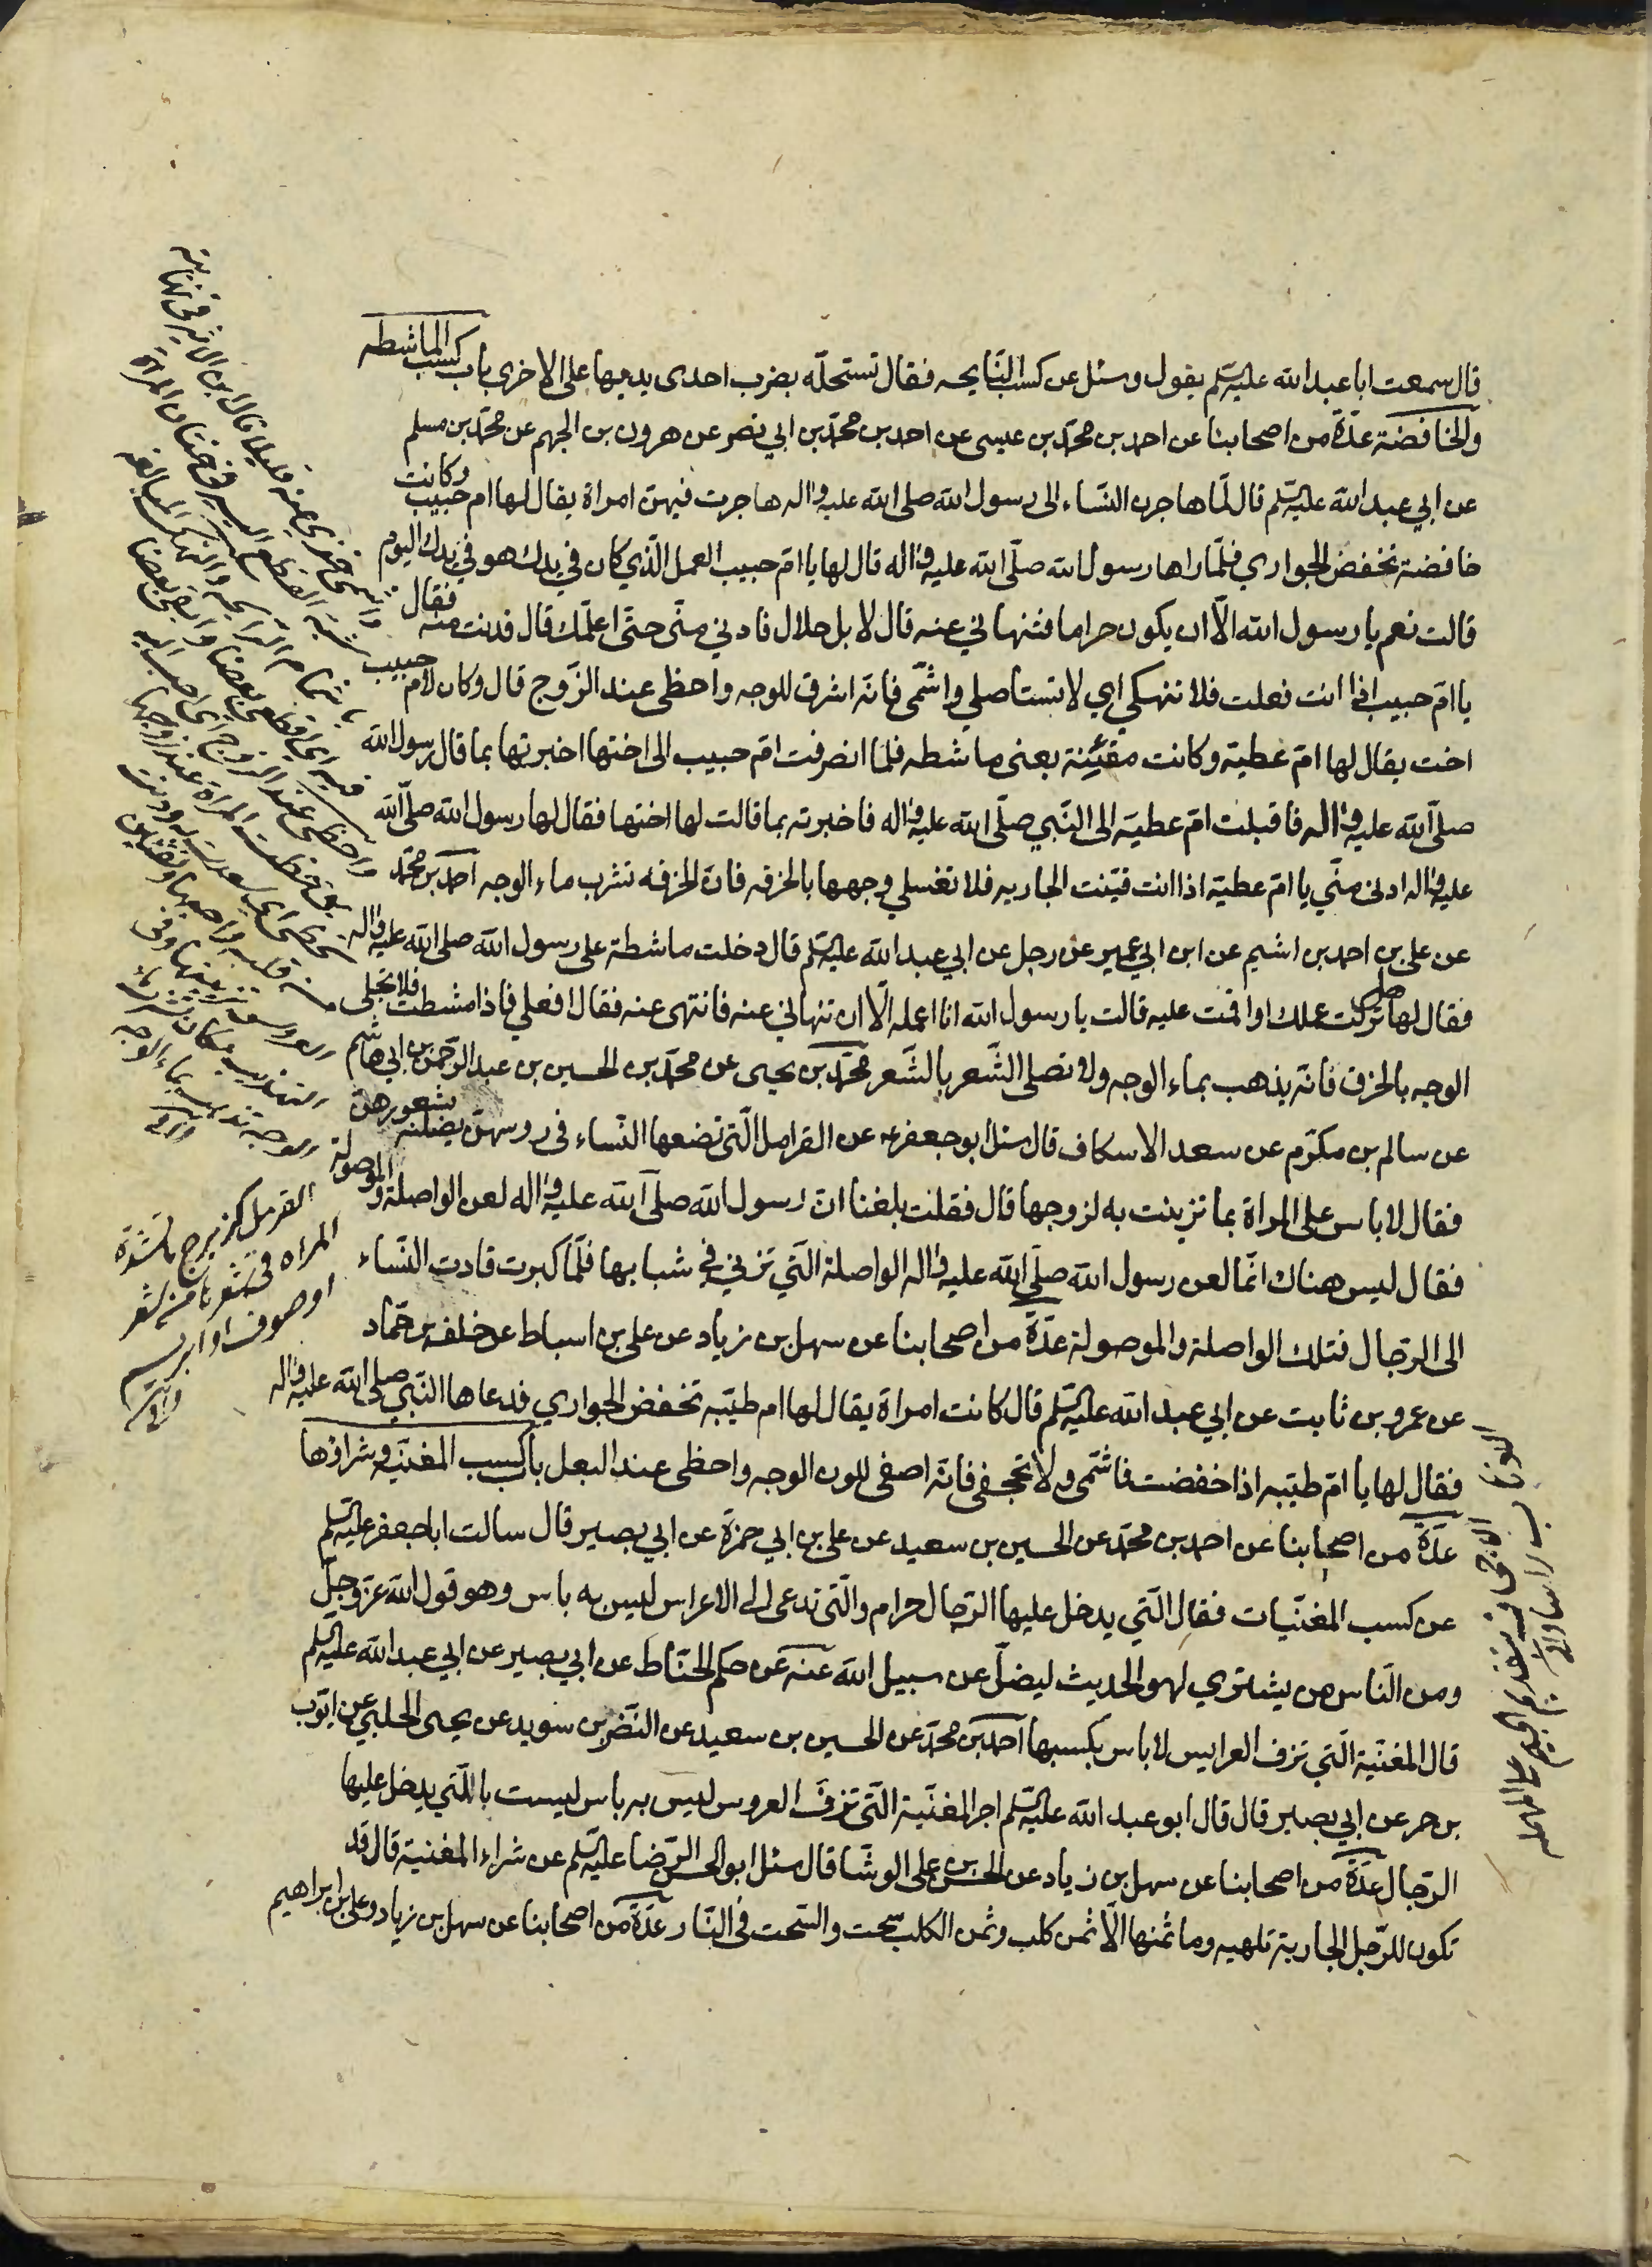 قال سمعت ابا عبد الله عليه السلم يقول وسئل عن كسب النايحه فقال تستحله بضرب احدى يديها على الاخرى باب كسب الماشطه
والخافضة عدة من اصحابنا عن احمد بن محمد بن عيسى عن احمد بن محمد بن ابي نصر عن هرون بن الجهم عن محمد بن مسلم
عن ابي عبد الله عليه السلم قال لما هاجرن النساء الى رسول الله صلى الله عليه واله هاجرت فيهن امراة يقال لها ام حبيب وكانت
خافضة تخفض الجواري فلما راها رسول الله صلى الله عليه واله قال لها يا ام حبيب العمل الذي كان في يدك هو في يدك اليوم
قالت نعم يا رسول الله الا ان يكون حراما فتنهاني عنه قال لا بل حلال فادني مني حتى اعلمك قال فدنت منه فقال
يا ام حبيب اذا انت فعلت فلا تنهكي اي لا تستاصلي واشمي فانه اشرق للوجه واحظى عند الزوج قال وكان لام حبيب
اخت يقال لها ام عطية وكانت مقينة يعنى ماشطه فلما انصرفت ام حبيب الى اختها اخبرتها بما قال رسول الله
صلى الله عليه واله فاقبلت ام عطيه الى النبي صلى الله عليه واله فاخبرته بما قالت لها اختها فقال لها رسول الله صلى الله
عليه واله ادنى مني يا ام عطية اذا انت قينت الجاريه فلا تغسلي وجهها بالخرقه فان الخرقه تشرب ماء الوجه احمد بن محمد
عن على بن احمد بن اشيم عن ابن ابي عمير عن رجل عن ابي عبد الله عليه السلم قال دخلت ماشطة على رسول الله صلى الله عليه واله
فقال لها هل تركت عملك او اقمت عليه قالت يا رسول الله انا اعمله الا ان تنهاني عنه فانتهى عنه فقال افعلي فاذا مشطت فلا تجلى
الوجه بالخرق فانه يذهب بماء الوجه ولا تصلى الشعر بالشعر محمد بن يحيى عن محمد بن الحسين بن عبد الرحمن بن ابي هاشم
عن سالم بن مكرم عن سعد الاسكاف قال سئل ابو جعفر ع عن القرامل التى تضعها النساء فى روسهن يصلنه بشعورهن
فقال لا باس على المراة بما تزينت به لزوجها قال فقلت بلغنا ان رسول الله صلى الله عليه واله لعن الواصلة والموصولة
فقال ليس هناك انما لعن رسول الله صلى الله عليه واله الواصلة التي تزني في شبابها فلما كبرت قادت النساء
الى الرجال فتلك الواصلة والموصولة عدة من اصحابنا عن سهل بن زياد عن على بن اسباط عن خلف بن حماد
عن عمرو بن ثابت عن ابي عبد الله عليه السلم قال كانت امراة يقال لها ام طيبه تخفض الجواري فدعاها النبي صلى الله عليه واله
فقال لها يا ام طيبه اذا خفضت فاشمى ولا تجحفى فانه اصفى للون الوجه واحظى عند البعل باب كسب المغنيه وشراؤها
عدة من اصحابنا عن احمد بن محمد عن الحسين بن سعيد عن على بن ابي حمزة عن ابي بصير قال سالت ابا جعفر عليه السلم
عن كسب المغنيات فقال التي يدخل عليها الرجال حرام والتى تدعى الى الاعراس ليس به باس وهو قول الله عز وجل
ومن الناس من يشتري لهو الحديث ليضل عن سبيل الله عنه عن حكم الحناط عن ابي بصير عن ابي عبد الله عليه السلم
قال المغنية التي تزف العرايس لا باس بكسبها احمد بن محمد عن الحسين بن سعيد عن النضر بن سويد عن يحيى الحلبي عن ايوب
بن حر عن ابي بصير قال قال ابو عبد الله عليه السلم اجر المغنية التى تزف العروس ليس به باس ليست بالتي يدخل عليها
الرجال عدة من اصحابنا عن سهل بن زياد عن الحسن بن على الوشا قال سئل ابو الحسن الرضا عليه السلم عن شراء المغنية قال قد
تكون للرجل الجارية تلهيه وما ثمنها الا ثمن كلب وثمن الكلب سحت والسحت فى النار عدة من اصحابنا عن سهل بن زياد وعلى بن ابراهيم
القرمل كزبرج ما تشده
المراه فى شعرها من شعر
او صوف او ابريسم